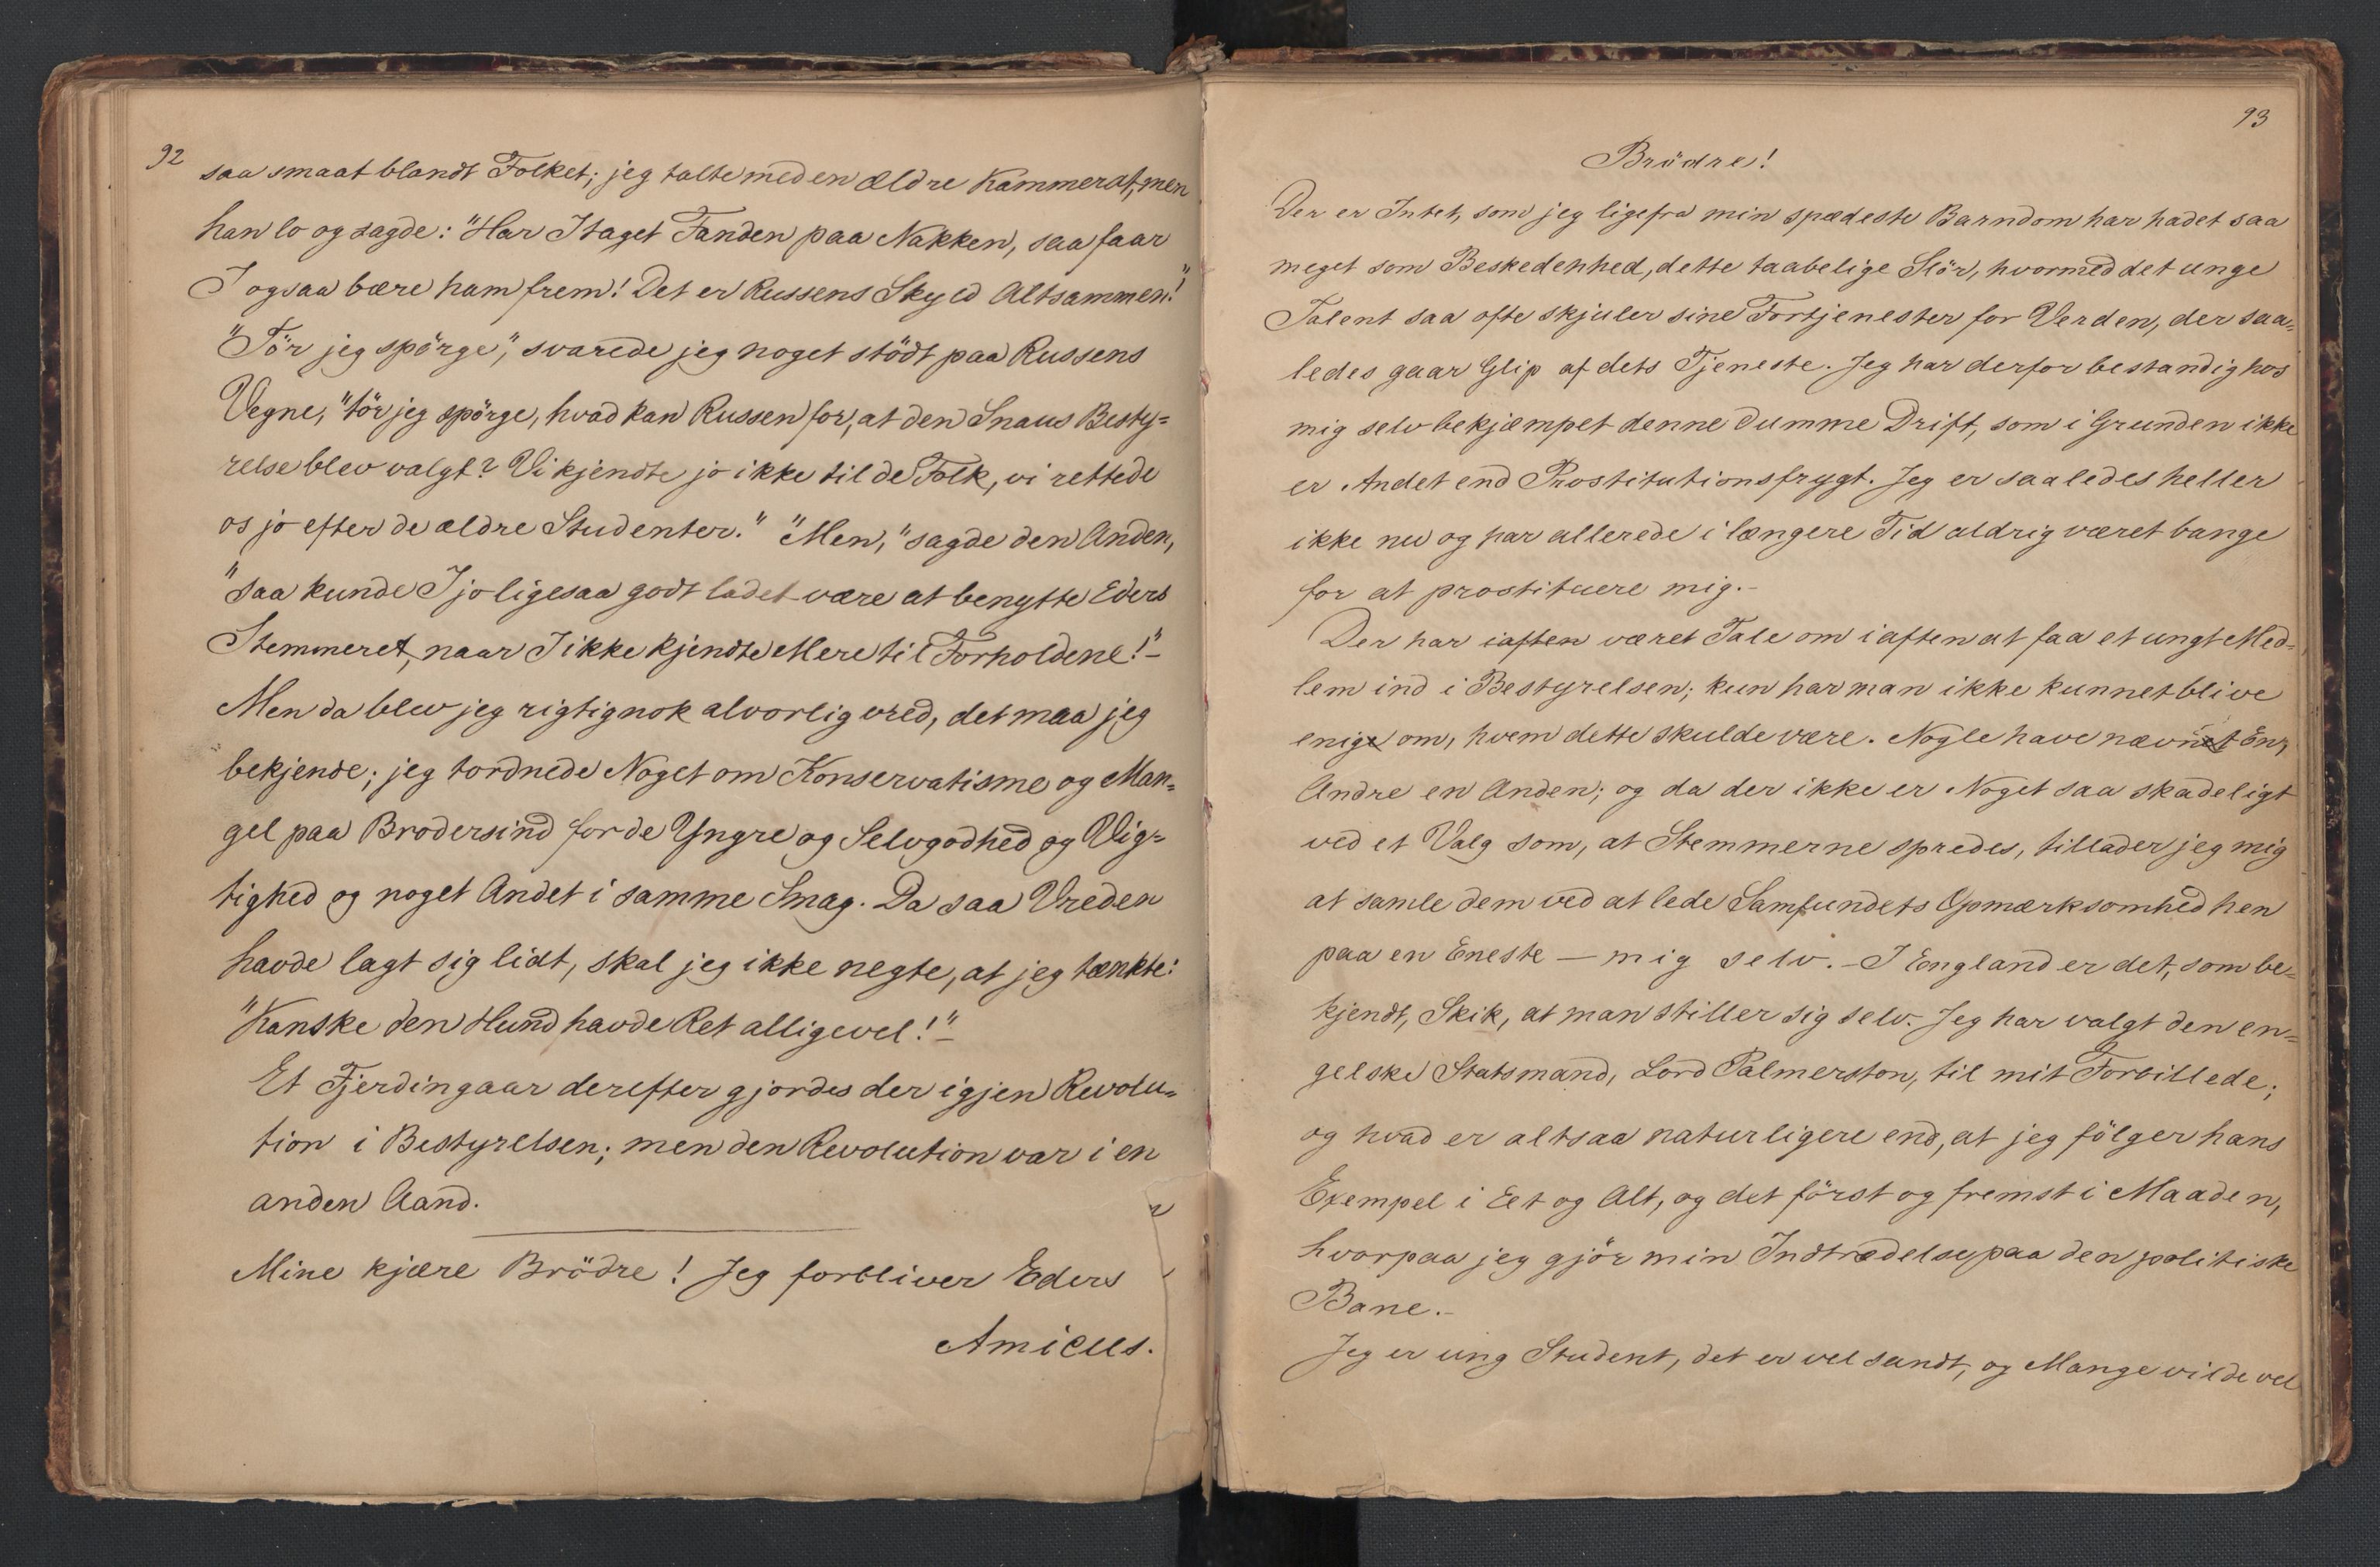 92
saa smaat blandt Folket; jeg talte med en ældre Kammerat, men
han lo og sagde: "Har I taget Fanden paa Nakken, saa faar
I ogsaa bære ham frem! Det er Russens Skyld Altsammen!"
"Tör jeg spörge", svarede jeg noget stödt paa Russens
Vegne, "tör jeg spörge, hvad kan Russen for, at den Snaus Besty=
relse blev valgt? Vi kjendte jo ikke til de Folk, vi rettede
os jo efter de ældre Studenter." "Men," sagde den Anden,
"saa kunde I jo ligesaa godt ladet være at benytte Eders
Stemmeret, naar I ikke kjendte Mere til Forholdene!"-
Men da blev jeg rigtignok alvorlig vred, det maa jeg
bekjende; jeg tordnede Noget om Konservatisme og Man=
gel paa Brodersind for de Yngre og Selvgodhed og Vig=
tighed og noget Andet i samme Smag. Da saa Vreden
havde lagt sig lidt, skal jeg ikke negte, at jeg tænkte:
"Kanske den Hund havde Ret alligevel!"-
Et Fjerdingaar derefter gjordes der igjen Revolu=
tion i Bestyrelsen; men den Revolution var i en
anden Aand.
Mine kjære Brödre! Jeg forbliver Eders
Amicus.
93
Brödre!
Der er Intet, som jeg ligefra min spædeste Barndom har hadet saa
meget som Beskedenhed, dette taabelige Slör, hvormed det unge
Talent saa ofte skjuler sine Fortjenester for Verden, der saa=
ledes gaar Glip af dets Tjeneste. Jeg har derfor bestandig hos
mig selv bekjæmpet denne dumme Drift, som i Grunden ikke
er Andet end Prostitutionsfrygt. Jeg er saaledes heller
ikke nu og har allerede i længere Tid aldrig været bange
for at prostituere mig.-
Der har iaften været Tale om i aften at faa et ungt Med=
lem ind i Bestyrelsen; kun har man ikke kunnet blive
enige om, hvem dette skulde være. Nogle have nævnt Èn,
Andre en Anden; og da der ikke er Noget saa skadeligt
ved et Valg som, at Stemmerne spredes, tillader jeg mig
at samle dem ved at lede Samfundets Opmærksomhed hen
paa en Eneste — mig selv. - I England er det, som be=
kjendt, Skik, at man stiller sig selv. Jeg har valgt den en=
gelske Statsmand, Lord Palmerston, til mit Forbillede;
og hvad er altsaa naturligere end, at jeg fölger hans
Exempel i Eet og Alt, og det först og fremst i Maaden,
hvorpaa jeg gjör min Indtrædelse paa den politiske
Bane.-
Jeg er ung Student, det er vel sandt, og Mange vilde vel